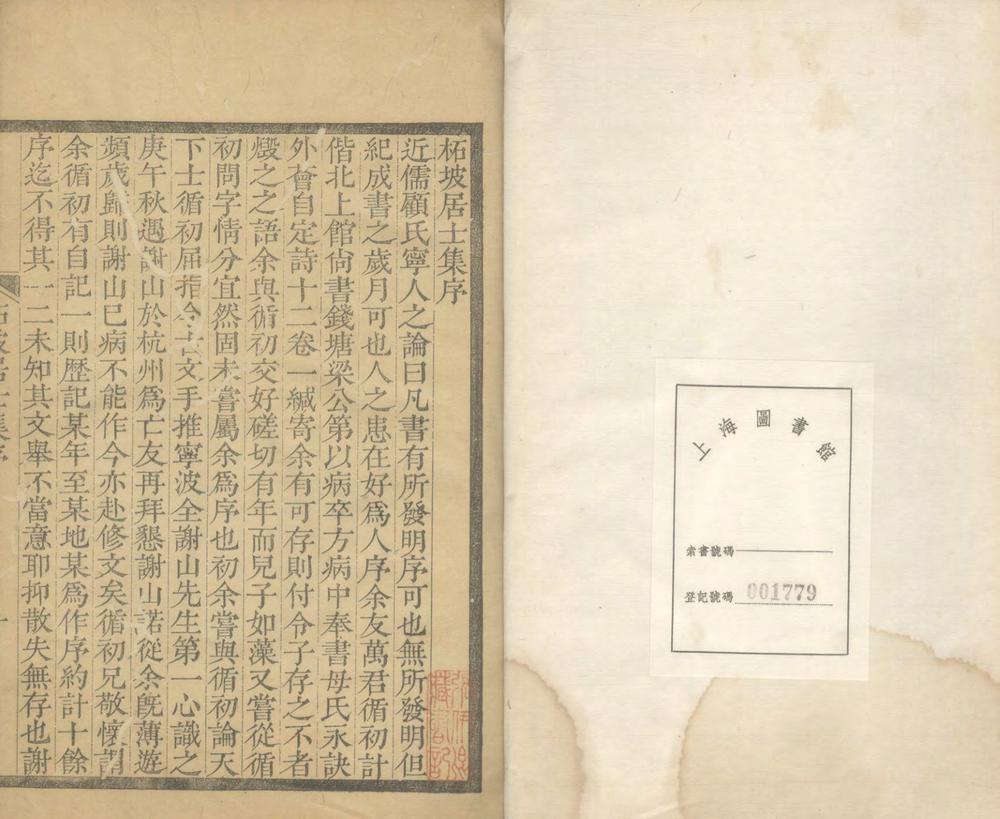 上海圖書館
索書號碼
登記號碼 001779
柘坡居士集序
近儒顧氏寧人之論曰凡書有所發明序可也無所發明但
紀成書之歲月可也人之患在好爲人序余友萬君循初計
偕北上館尙書錢塘梁公第以病卒方病中奉書母氏永訣
外會自定詩十二卷一緘寄余有可存則付令子存之不者
燬之之語余與循初交好磋切有年而兒子如藻又嘗從循
初問字情分宜然固未嘗屬余爲序也初余嘗與循初論天
下士循初屈指今古文手推寧波全謝山先生第一心識之
庚午秋遇謝山於杭州爲亡友再拜懇謝山諾從余旣薄遊
頻歲歸則謝山已病不能作今亦赴修文矣循初兄敬懷謂
余循初有自記一則歷記某年至某地某爲作序約計十餘
序迄不得其一二未知其文舉不當意耶抑散失無存也謝
柘坡居士集序
一